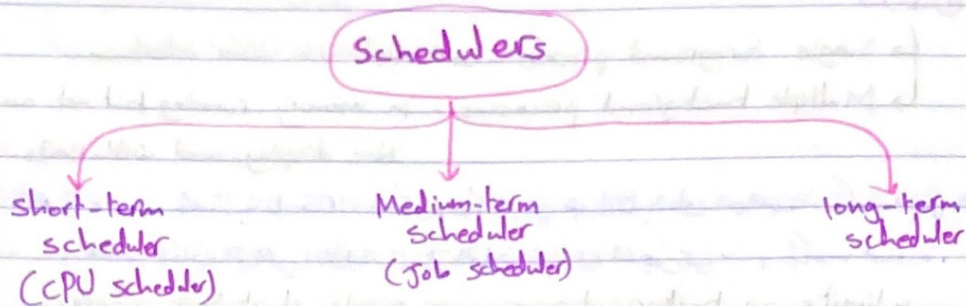 Schedulers
short-term
scheduler
(CPU scheduler)
Medium-term
scheduler
(Job scheduler)
long-term
scheduler